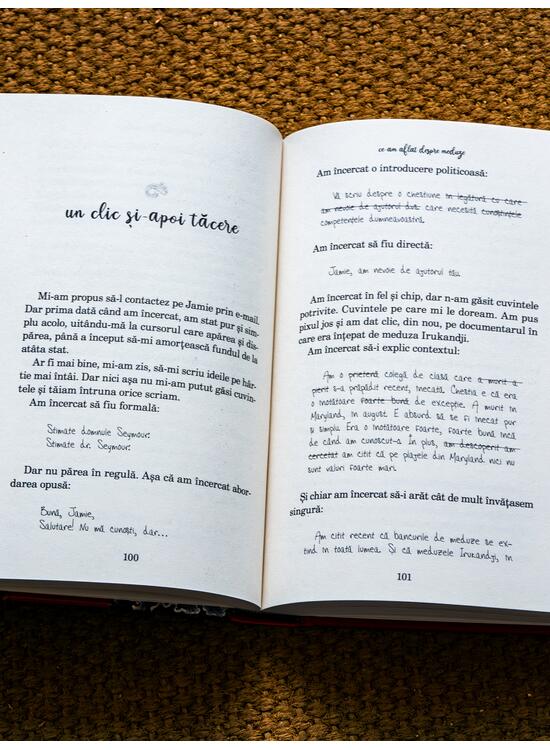 un clic și-apoi tăcere
Mi-am propus să-l contactez pe Jamie prin e-mail.
Dar prima dată când am încercat, am stat pur și sim-
plu acolo, uitându-mă la cursorul care apărea și dis-
părea, până a început să-mi amorțească fundul de la
atâta stat.
Ar fi mai bine, mi-am zis, să-mi scriu ideile pe hâr-
tie mai întâi. Dar nici așa nu mi-am putut găsi cuvin-
tele și tăiam întruna orice scriam.
Am încercat să fiu formală:
Stimate domnule Seymour:
Stimate dr. Seymour:
Dar nu părea în regulă. Așa că am încercat abor-
darea opusă:
Bună, Jamie,
Salutare! Nu mă cunoști, dar...
100
ce am aflat despre meduze
Am încercat o introducere politicoasă:
Vă scriu despre o chestiune în legătură cu care
am nevoie de ajutorul dvs. care necesită cunoștințele
competențele dumneavoastră.
Am încercat să fiu directă:
Jamie, am nevoie de ajutorul tău.
Am încercat în fel și chip, dar n-am găsit cuvintele
potrivite. Cuvintele pe care mi le doream. Am pus
pixul jos și am dat clic, din nou, pe documentarul în
care era înțepat de meduza Irukandji.
Am încercat să-i explic contextul:
Am o prietenă colegă de clasă care a murit a
pierit s-a prăpădit recent, înecată. Chestia e că era
o înotătoare foarte bună de excepție. A murit în
Maryland, în august. E absurd să se fi înecat pur
și simplu. Era o înotătoare foarte, foarte bună încă
de când am cunoscut-o. În plus, am descoperit am
cercetat am citit că pe plajele din Maryland nici nu
sunt valuri foarte mari.
Și chiar am încercat să-i arăt cât de mult învățasem
singură:
Am citit recent că bancurile de meduze se ex-
tind în toată lumea. Și că meduzele Irukandji, în
101